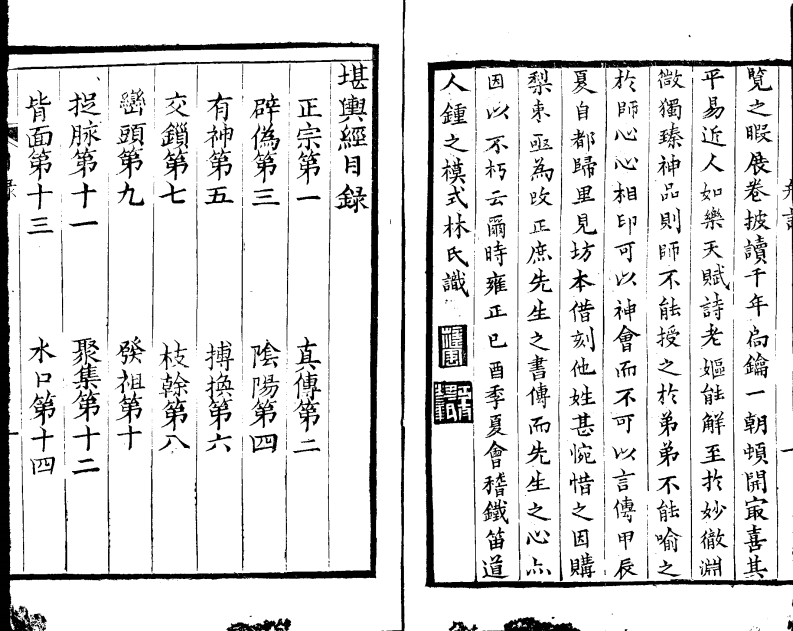 覽之暇展卷披讀千年扃鑰一朝頓開㝡喜其
平易近人如樂天賦詩老嫗能解至扵妙徹淵
微獨臻神品則師不能授之扵弟弟不能喻之
扵師心心相印可以神會而不可以言傳甲辰
夏自都歸里見坊本借刻他姓甚惋惜之因購
梨棗亟為改正庶先生之書傳而先生之心亦
因以不朽云爾時雍正己酉季夏會稽鐵笛道
人鍾之模式林氏識
堪輿經目録
正宗第一 真傳第二
辟偽第三 陰陽第四
有神第五 摶換第六
交鎖第七 枝幹第八
巒頭第九 發祖第十
捉脉第十一 聚集第十二
背面第十三 水口第十四